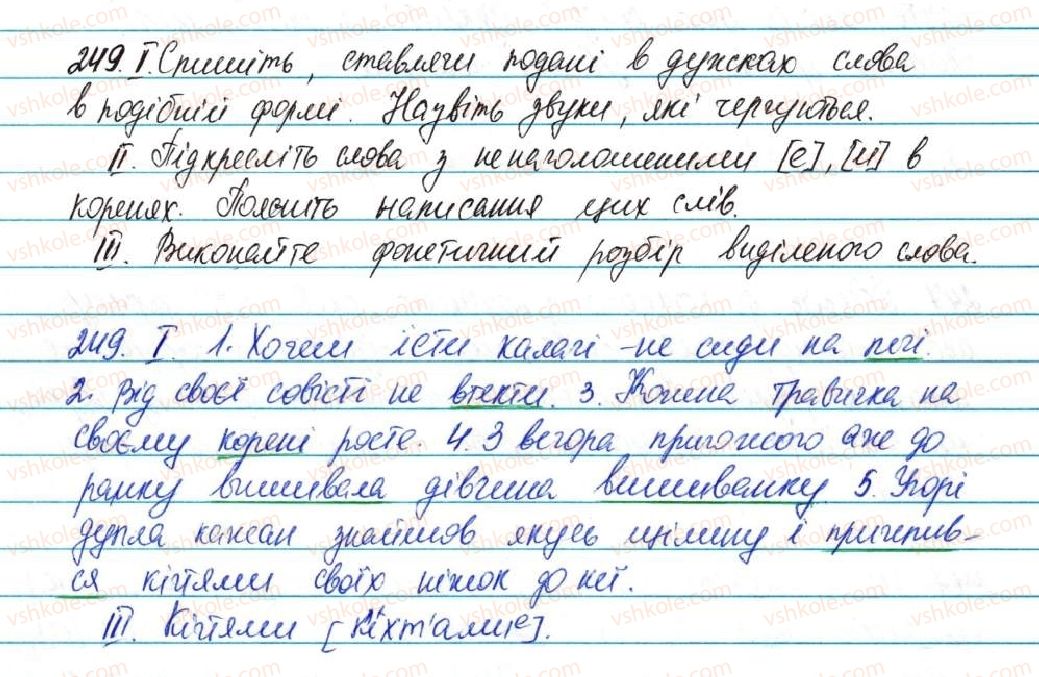 249. І. Спишіть, ставлячи подані в дужках слова
в подібній формі. Назвіть звуки, які чергуються.
ІІ. Підкресліть слова з ненаголошеними [е], [и] в
коренях. Поясніть написання цих слів.
ІІІ. Виконайте фонетичний розбір виділеного слова.
249. І. 1. Хочеш їсти калачі - не сиди на печі.
2. Від своєї совісті не втекти. 3. Кожна травичка на
своєму корені росте. 4. З вечора пригожого аже до
ранку вишивала дівчина вишиванку. 5. Угорі
дупла кажан знайшов якусь щілину і причепив-
ся кігтями своїх ніжок до неї.
ІІІ. Кігтями [к'іхт'амие].